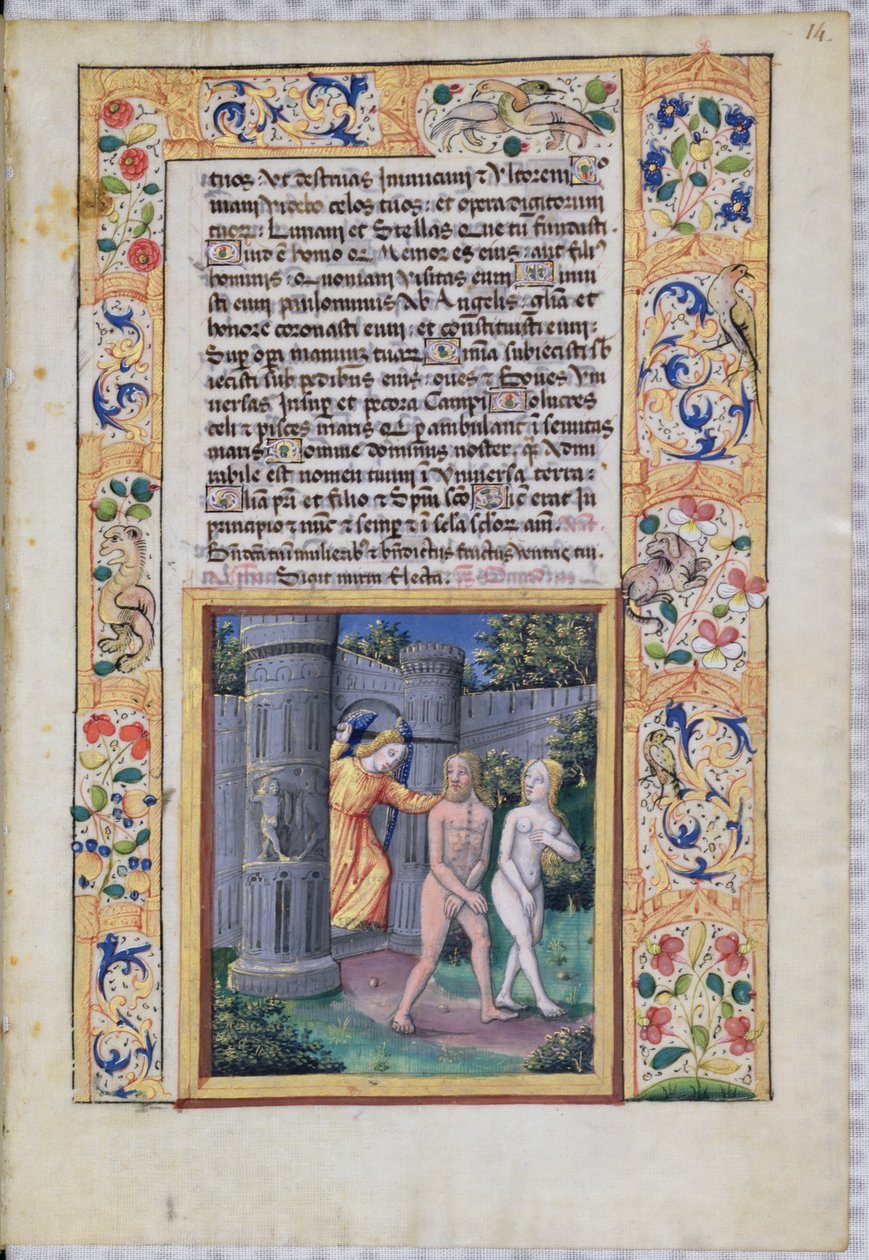 14.
tuos: Vt destruas Inimicum & Vltorem Qo
niam Videbo celos tuos: et opera digitorum
tuorꝝ: Lunam et Stellas Que tu fundasti.
Quid ē homo qꝫ Memor es eius: aut fili⁹
hominis: Quoniam Visitas eum Minui
sti eum paulominus Ab Angelis: gl̄ia et
honore coronasti eum: et constituisti eum:
Sup̄ opa manuum tuarꝝ Omīa subiecisti sb
iecisti sub pedibus eius: oues & Boues Vni
uersas Insup̄ et pecora Campi Volucres
celi & pisces maris Qui pambulant ī semitas
maris Domine dominus noster: qꝫ Admi
rabile est nomen tuum ī Vniuersa terra:
Glīa pr̄i et filio & Spūi scō Sic erat In
principio & nūc & semp̄ & ī sc̄la sc̄lorꝝ am̄. Ant.
Bn̄dcā tu ī mulieribꝫ & bn̄dictus fructus uentris tui.
Sicut mirra Electa. ps